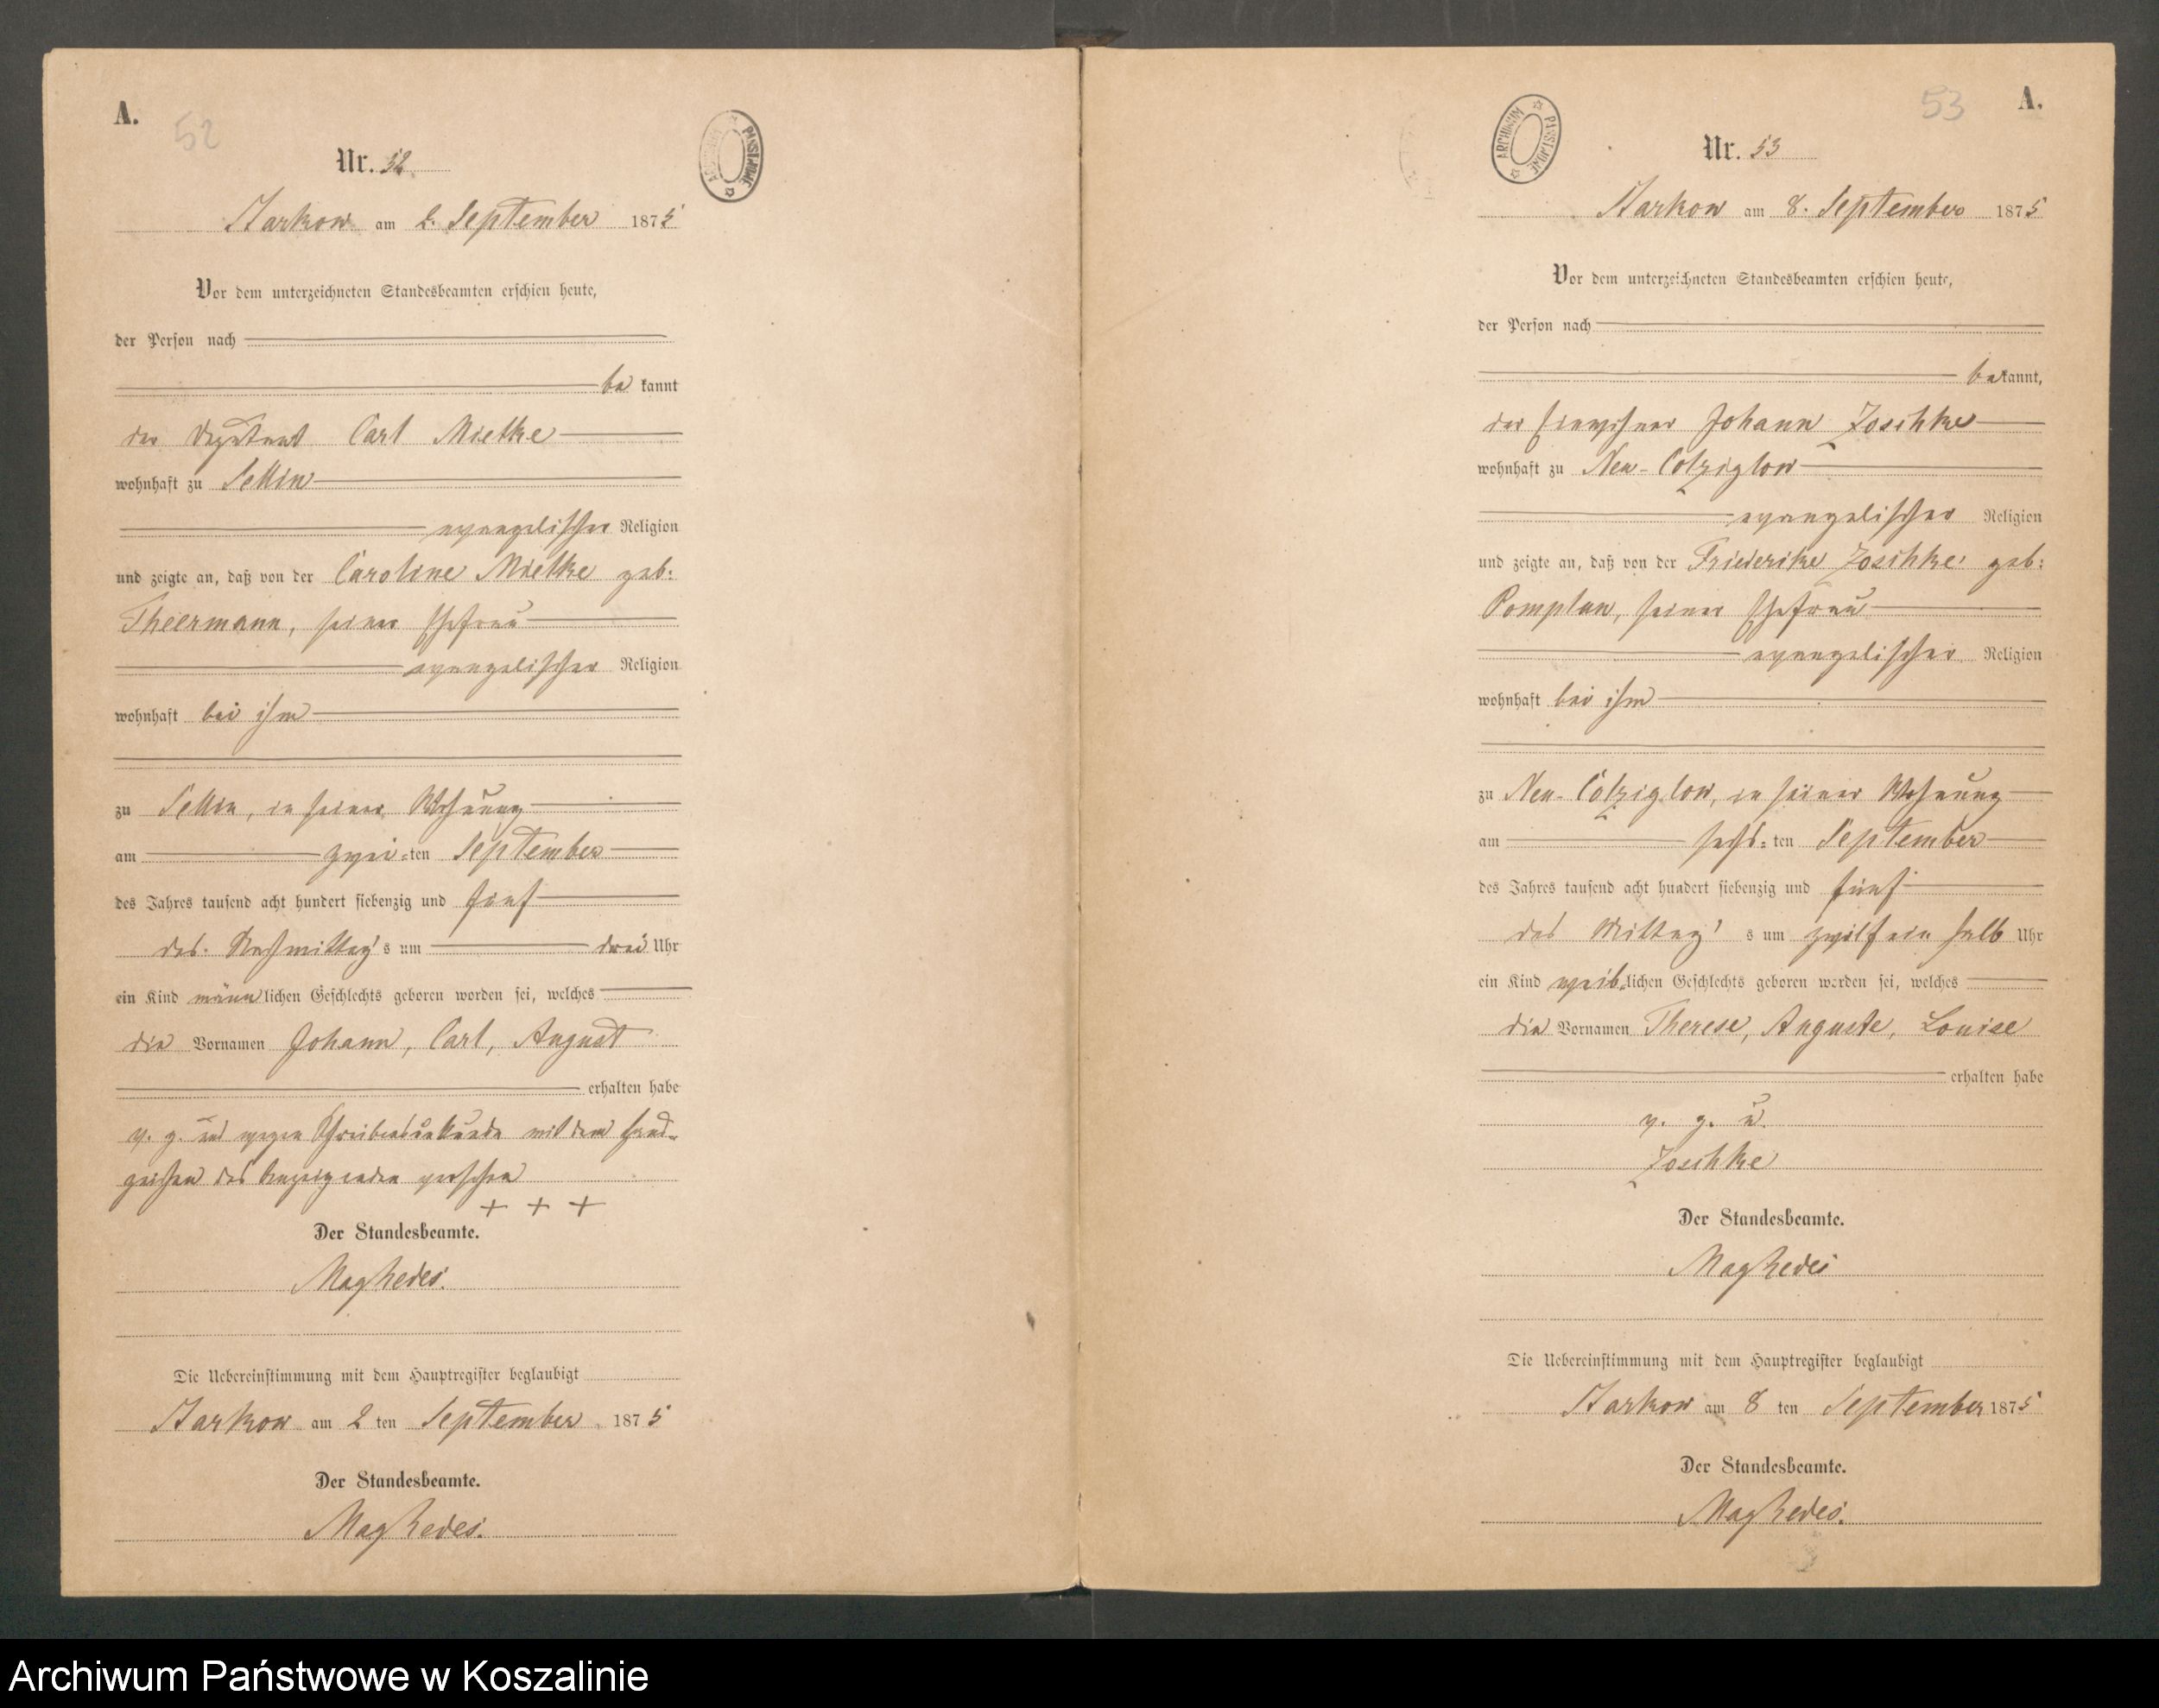 A.
52
Nr. 52.
ARCHIWUM PAŃSTWOWE
Starkow am 2. September 1875
Vor dem unterzeichneten Standesbeamten erschien heute,
der Person nach
be kannt
der Deputant Carl Mielke
wohnhaft zu Sellin
evangelischer Religion
und zeigte an, daß von der Caroline Mielke geb:
Theermann, seiner Ehefrau
evangelischer Religion
wohnhaft bei ihm
zu Sellin, in seiner Wohnung
am zwei=ten September
des Jahres tausend acht hundert siebenzig und fünf
des Nachmittag's um drei Uhr
ein Kind männlichen Geschlechts geboren worden sei, welches
die Vornamen Johann, Carl, August
erhalten habe
v. g. und wegen Schreibensunkunde mit dem Hand-
zeichen des Anzeigenden versehen
+ + +
Der Standesbeamte.
Die Uebereinstimmung mit dem Hauptregister beglaubigt
Starkow am 2 ten September 1875
Der Standesbeamte.
53
A.
Nr. 53
ARCHIWUM PAŃSTWOWE
Starkow am 8. September 1875
Vor dem unterzeichneten Standesbeamten erschien heute,
der Person nach
bekannt,
der Einwohner Johann Zoschke
wohnhaft zu Neu-Colziglow
evangelischer Religion
und zeigte an, daß von der Friederike Zoschke geb:
Pomplun, seiner Ehefrau
evangelischer Religion
wohnhaft bei ihm
zu Neu-Colziglow, in seiner Wohnung
am sechs=ten September
des Jahres tausend acht hundert siebenzig und fünf
des Mittag's um zwölf ein halb Uhr
ein Kind weiblichen Geschlechts geboren worden sei, welches
die Vornamen Therese, Auguste, Louise
erhalten habe
v. g. u.
Zoschke
Der Standesbeamte.
Die Uebereinstimmung mit dem Hauptregister beglaubigt
Starkow am 8 ten September 1875
Der Standesbeamte.
Archiwum Państwowe w Koszalinie